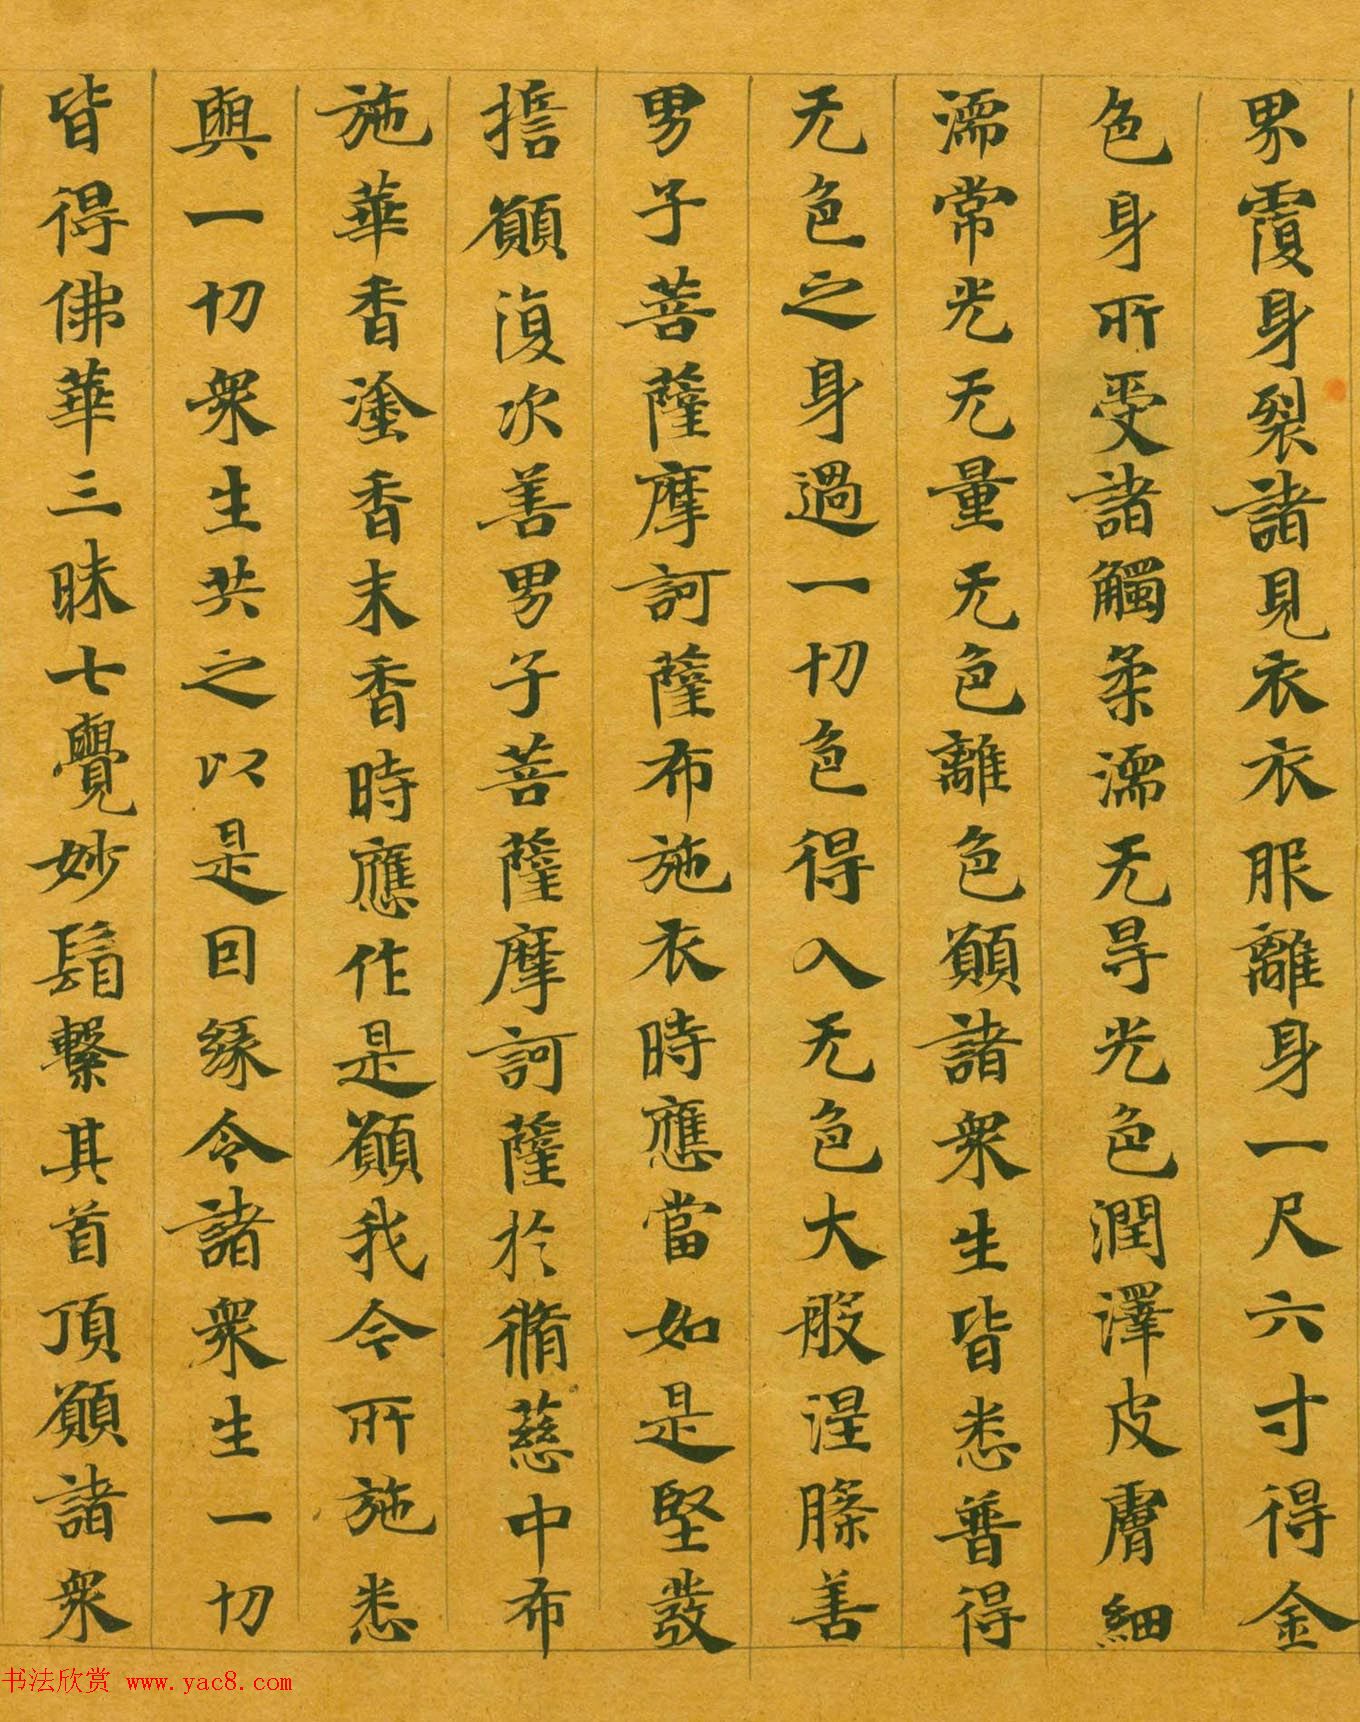 界覆身裂諸見衣衣服離身一尺六寸得金
色身所受諸觸柔濡无㝵光色潤澤皮膚細
濡常光无量无色離色願諸衆生皆悉普得
无色之身過一切色得入无色大般涅槃善
男子菩薩摩訶薩布施衣時應當如是堅發
擔願復次善男子菩薩摩訶薩於脩慈中布
施華香塗香末香時應作是願我今所施悉
與一切衆生共之以是因緣令諸衆生一切
皆得佛華三昧七覺妙鬘繫其首頂願諸衆
书法欣赏 www.yac8.com